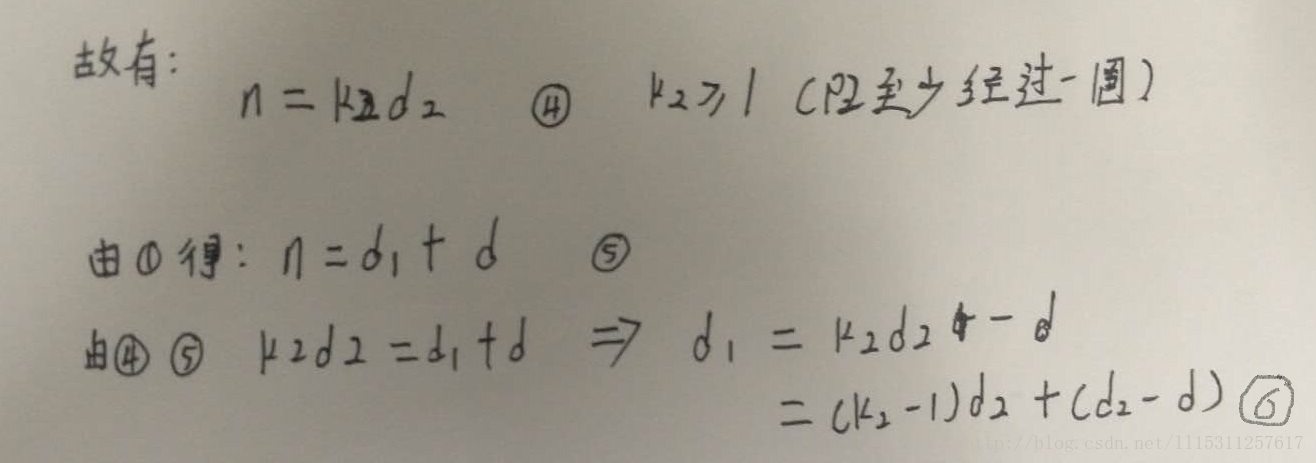 故有:
n = k2d2 ④ k2≥1 (P2至少经过一圈)
由①得: n = d1 + d ⑤
由④⑤ k2d2 = d1+d ⇒ d1 = k2d2 - d
= (k2-1)d2 + (d2-d) ⑥
http://blog.csdn.net/1115311257617